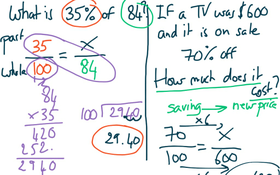 What is 35% of 84?
part
35 = x
whole
100
84
84
x 35
420
252.
2940
100 ) 2940
29.40
If a TV was $600
and it is on sale
70% off
How much does it
cost?
saving → new price
x6
70 = x
100
600